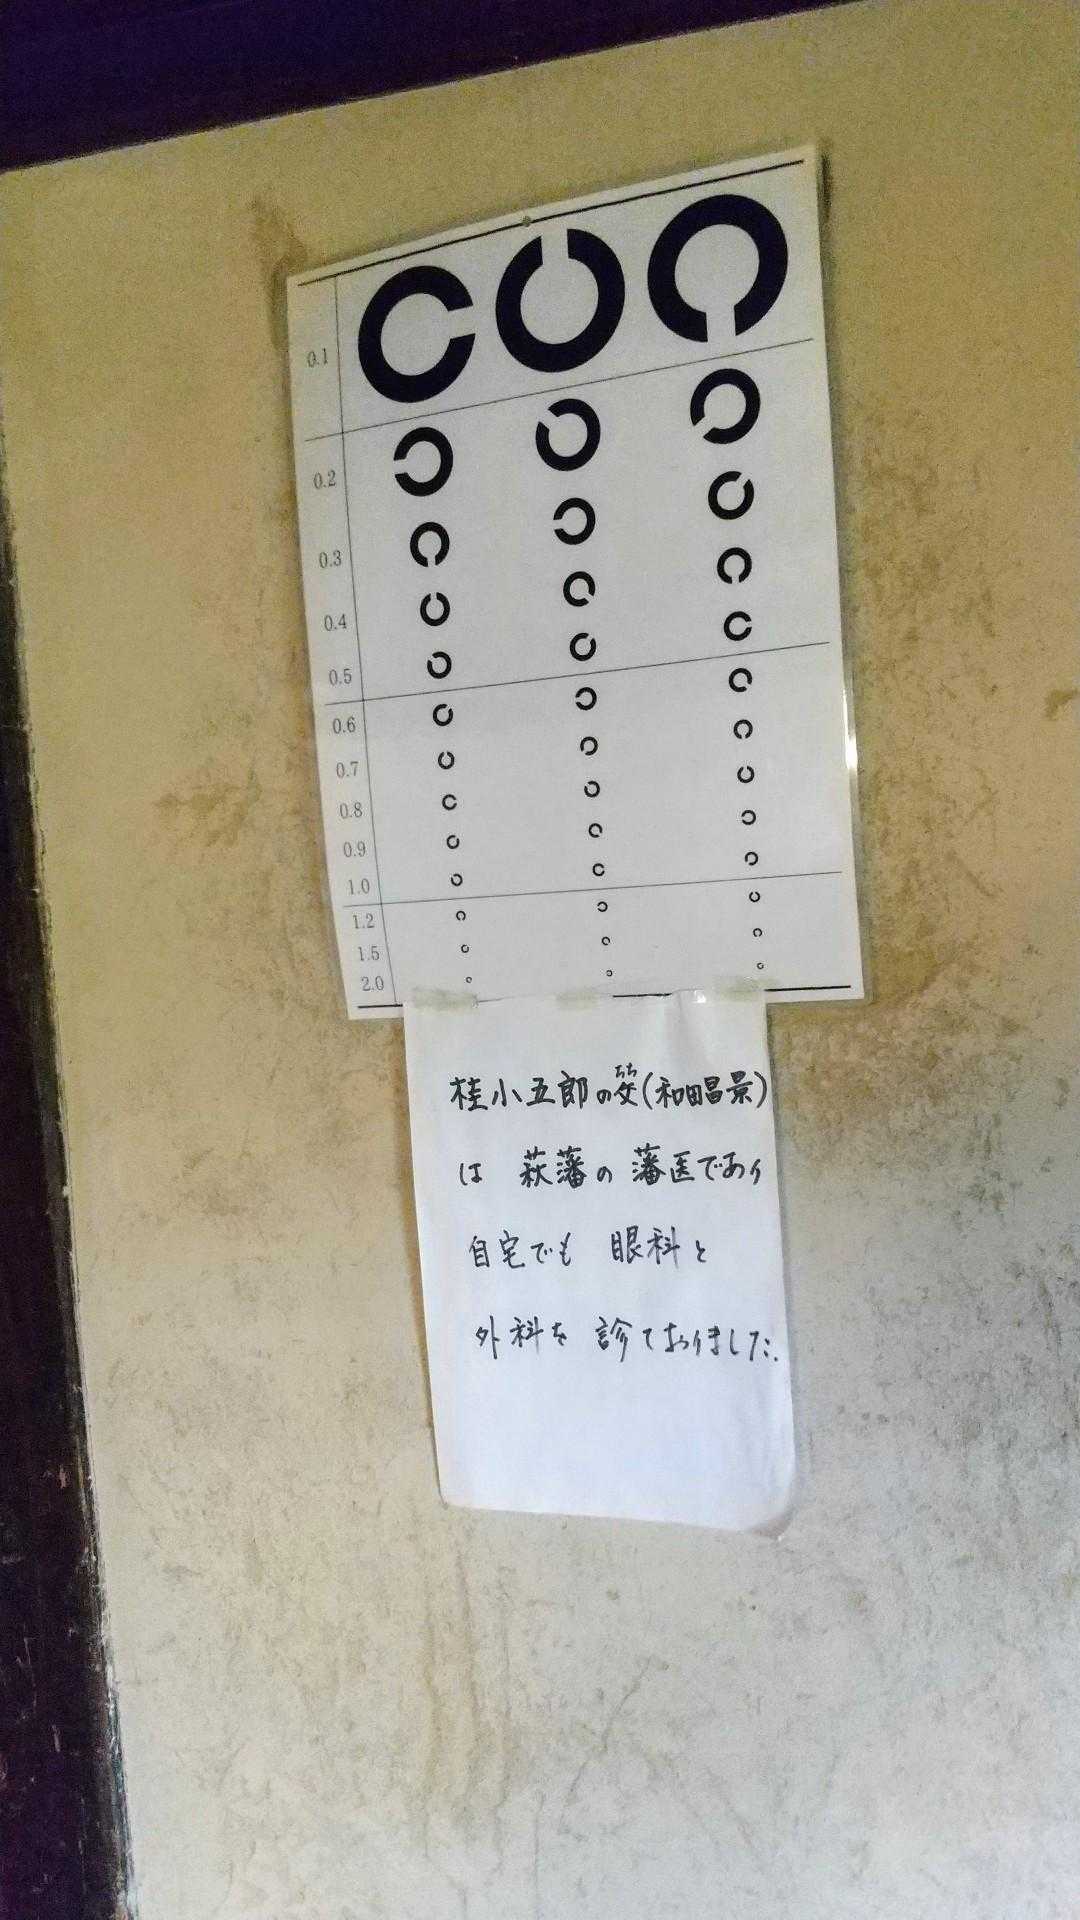 0.1
0.2
0.3
0.4
0.5
0.6
0.7
0.8
0.9
1.0
1.2
1.5
2.0
桂小五郎の父(和田昌景)
ちち
は 萩藩の 藩医であり
自宅でも 眼科と
外科を 診ておりました.